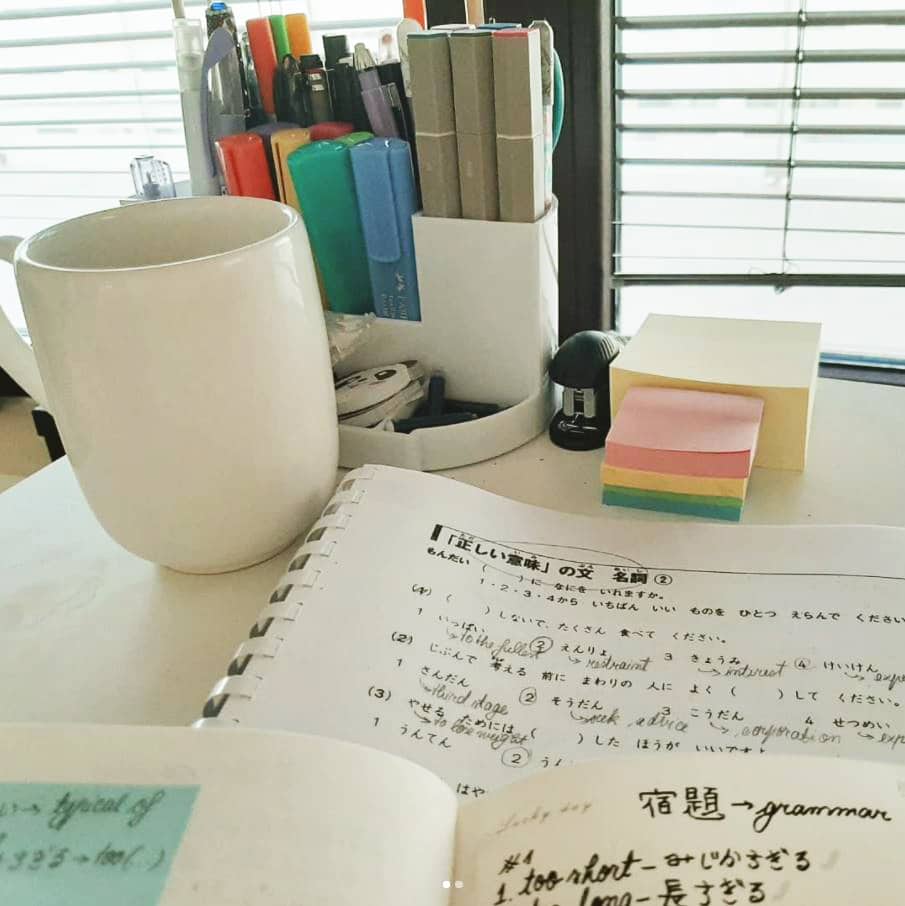 「正しい意味」の文 名詞②
もんだい ( )に なにを いれますか。
1・2・3・4から いちばん いい ものを ひとつ えらんで ください
(1) ( )しないで、たくさん 食べて ください。
1 いっぱい 2 えんりょ 3 きょうみ 4 けいけん
to the fullest restraint interest
(2) じぶんで 考える 前に まわりの 人に よく ( )して ください。
1 さんだん 2 そうだん 3 こうだん 4 せつめい
third stage seek advice corporation
(3) やせる ためには ( )した ほうが いいですよ
to lose weight
1 うんてん 2
はや
→ typical of
すぎる → too(..)
lucky day
宿題→grammar
#1
1. too short - みじかすぎる
long - 長すぎる